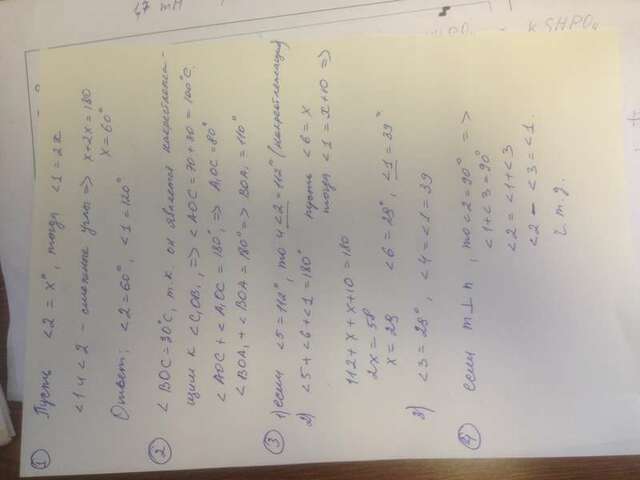 ① Пусть ∠2 = x°, тогда ∠1 = 2x
∠1 и ∠2 - смежные углы => x+2x=180
x=60°
Ответ: ∠2=60°, ∠1=120°
② ∠BOC=30°C, т.к. он является накрестлежа-
щим к ∠C₁OB₁, => ∠AOC=70+30=100°C.
∠AOC + ∠A₁OC = 180°, => A₁OC=80°
∠BOA₁ + ∠BOA = 180° => BOA₁ = 110°
③ 1) если ∠5=112°, то и ∠2=112° (накрестлежащий)
2) ∠5+∠6+∠1=180° пусть ∠6 = x
тогда ∠1 = x+10 =>
112+x+x+10=180
2x = 58
x = 29 ∠6 = 29°, ∠1 = 39°
3) ∠3 = 29°, ∠4=∠1=39
④ если m⊥n, то ∠2=90° =>
∠1+∠3=90°
∠2 = ∠1+∠3
∠2 - ∠3=∠1.
ч.т.д.